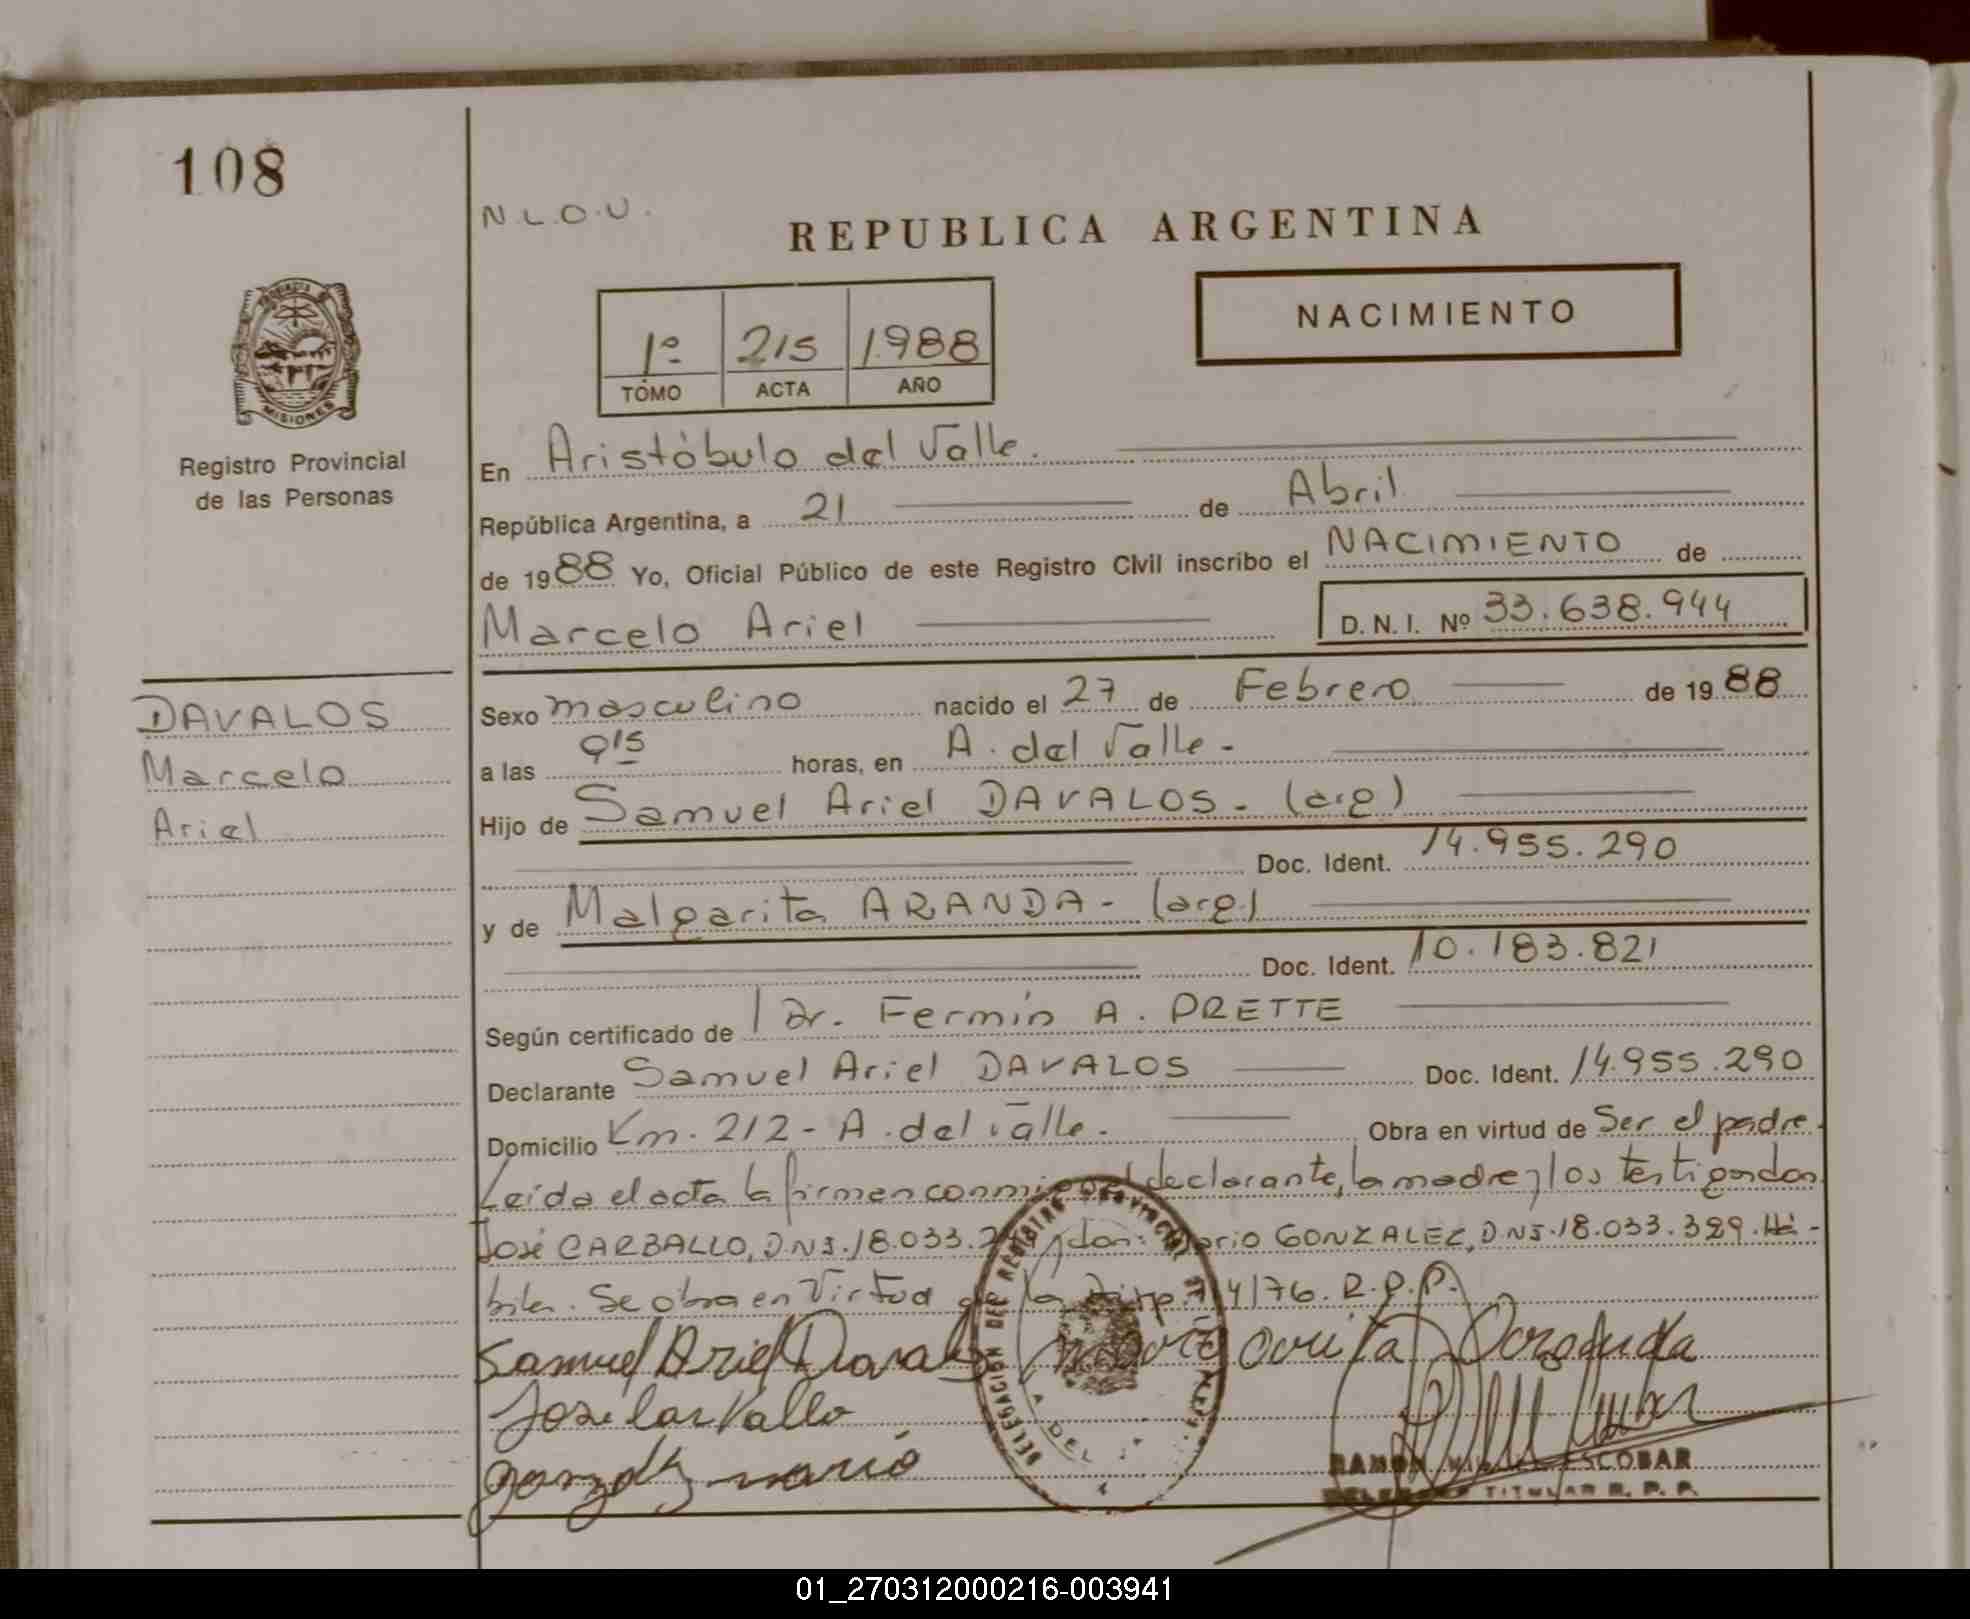 108
N.L.O.U.
REPUBLICA ARGENTINA
PROVINCIA DE
MISIONES
Registro Provincial
de las Personas
1º 215 1988
TOMO ACTA AÑO
NACIMIENTO
En Aristóbulo del Valle.
República Argentina, a 21 de Abril
de 1988 Yo, Oficial Público de este Registro Civil inscribo el NACIMIENTO de
Marcelo Ariel D.N.I. Nº 33.638.944
DAVALOS
Marcelo
Ariel
Sexo masculino nacido el 27 de Febrero de 1988
a las 9 15 horas, en A. del Valle -
Hijo de Samuel Ariel DAVALOS - (arg)
Doc. Ident. 14.955.290
y de Malgarita ARANDA - (arg)
Doc. Ident. 10.183.821
Según certificado de Dr. Fermín A. PRETTE
Declarante Samuel Ariel DAVALOS Doc. Ident. 14.955.290
Domicilio Km. 212 - A. del Valle. Obra en virtud de Ser el padre.
Leída el acta la firman conmigo el declarante, la madre y los testigos don
José CARBALLO, DNI. 18.033.2 y don: Mario GONZALEZ, DNI. 18.033.329. Há-
biles. Se obra en Virtud de la Disp. 4/76. R.P.P.
Samuel Ariel Davalos
Jose Carvallo
gonzalez mario
DELEGACION DEL REGISTRO PROVINCIAL
A DEL
RAMON ESCOBAR
TITULAR R. P. P.
01_270312000216-003941